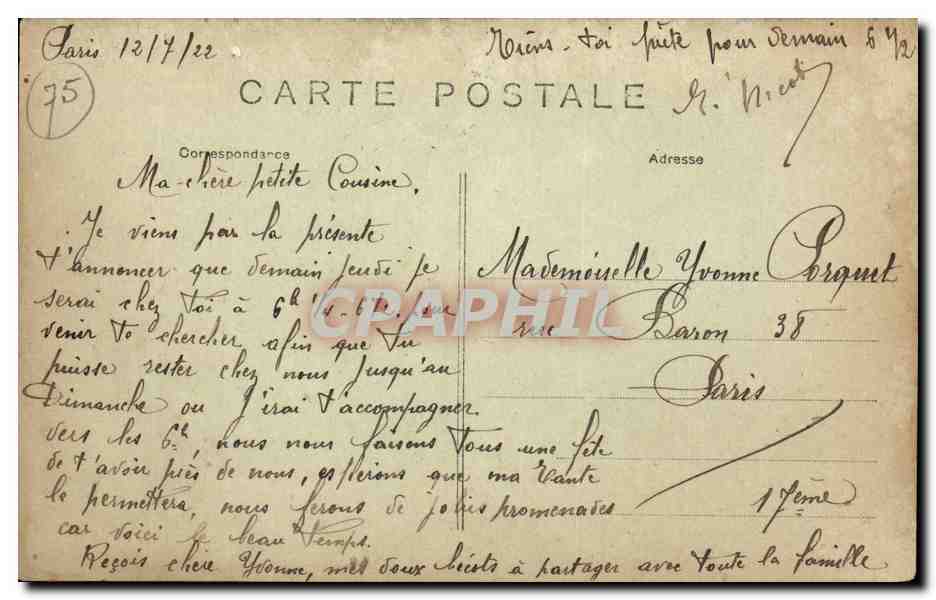 Paris 12/7/22
Tiens-toi prête pour demain 6 1/2
75
CARTE POSTALE
Correspondance
Adresse
Ma chère petite Cousine,
Je viens par la présente
t'annoncer que demain Jeudi je
serai chez toi à 6h 1/4 - 6 1/2 pour
venir te chercher afin que tu
puisse rester chez nous jusqu'au
Dimanche ou j'irai t'accompagner
vers les 6h, nous nous faisons tous une fête
de t'avoir près de nous, espérons que ma Tante
le permettera, nous ferons de jolis promenades
car voici le beau temps.
Reçois chère Yvonne, mes doux bécots à partager avec toute la famille
Mademoiselle Yvonne Porquet
rue Baron 38
Paris
17ème
CPAPHIL